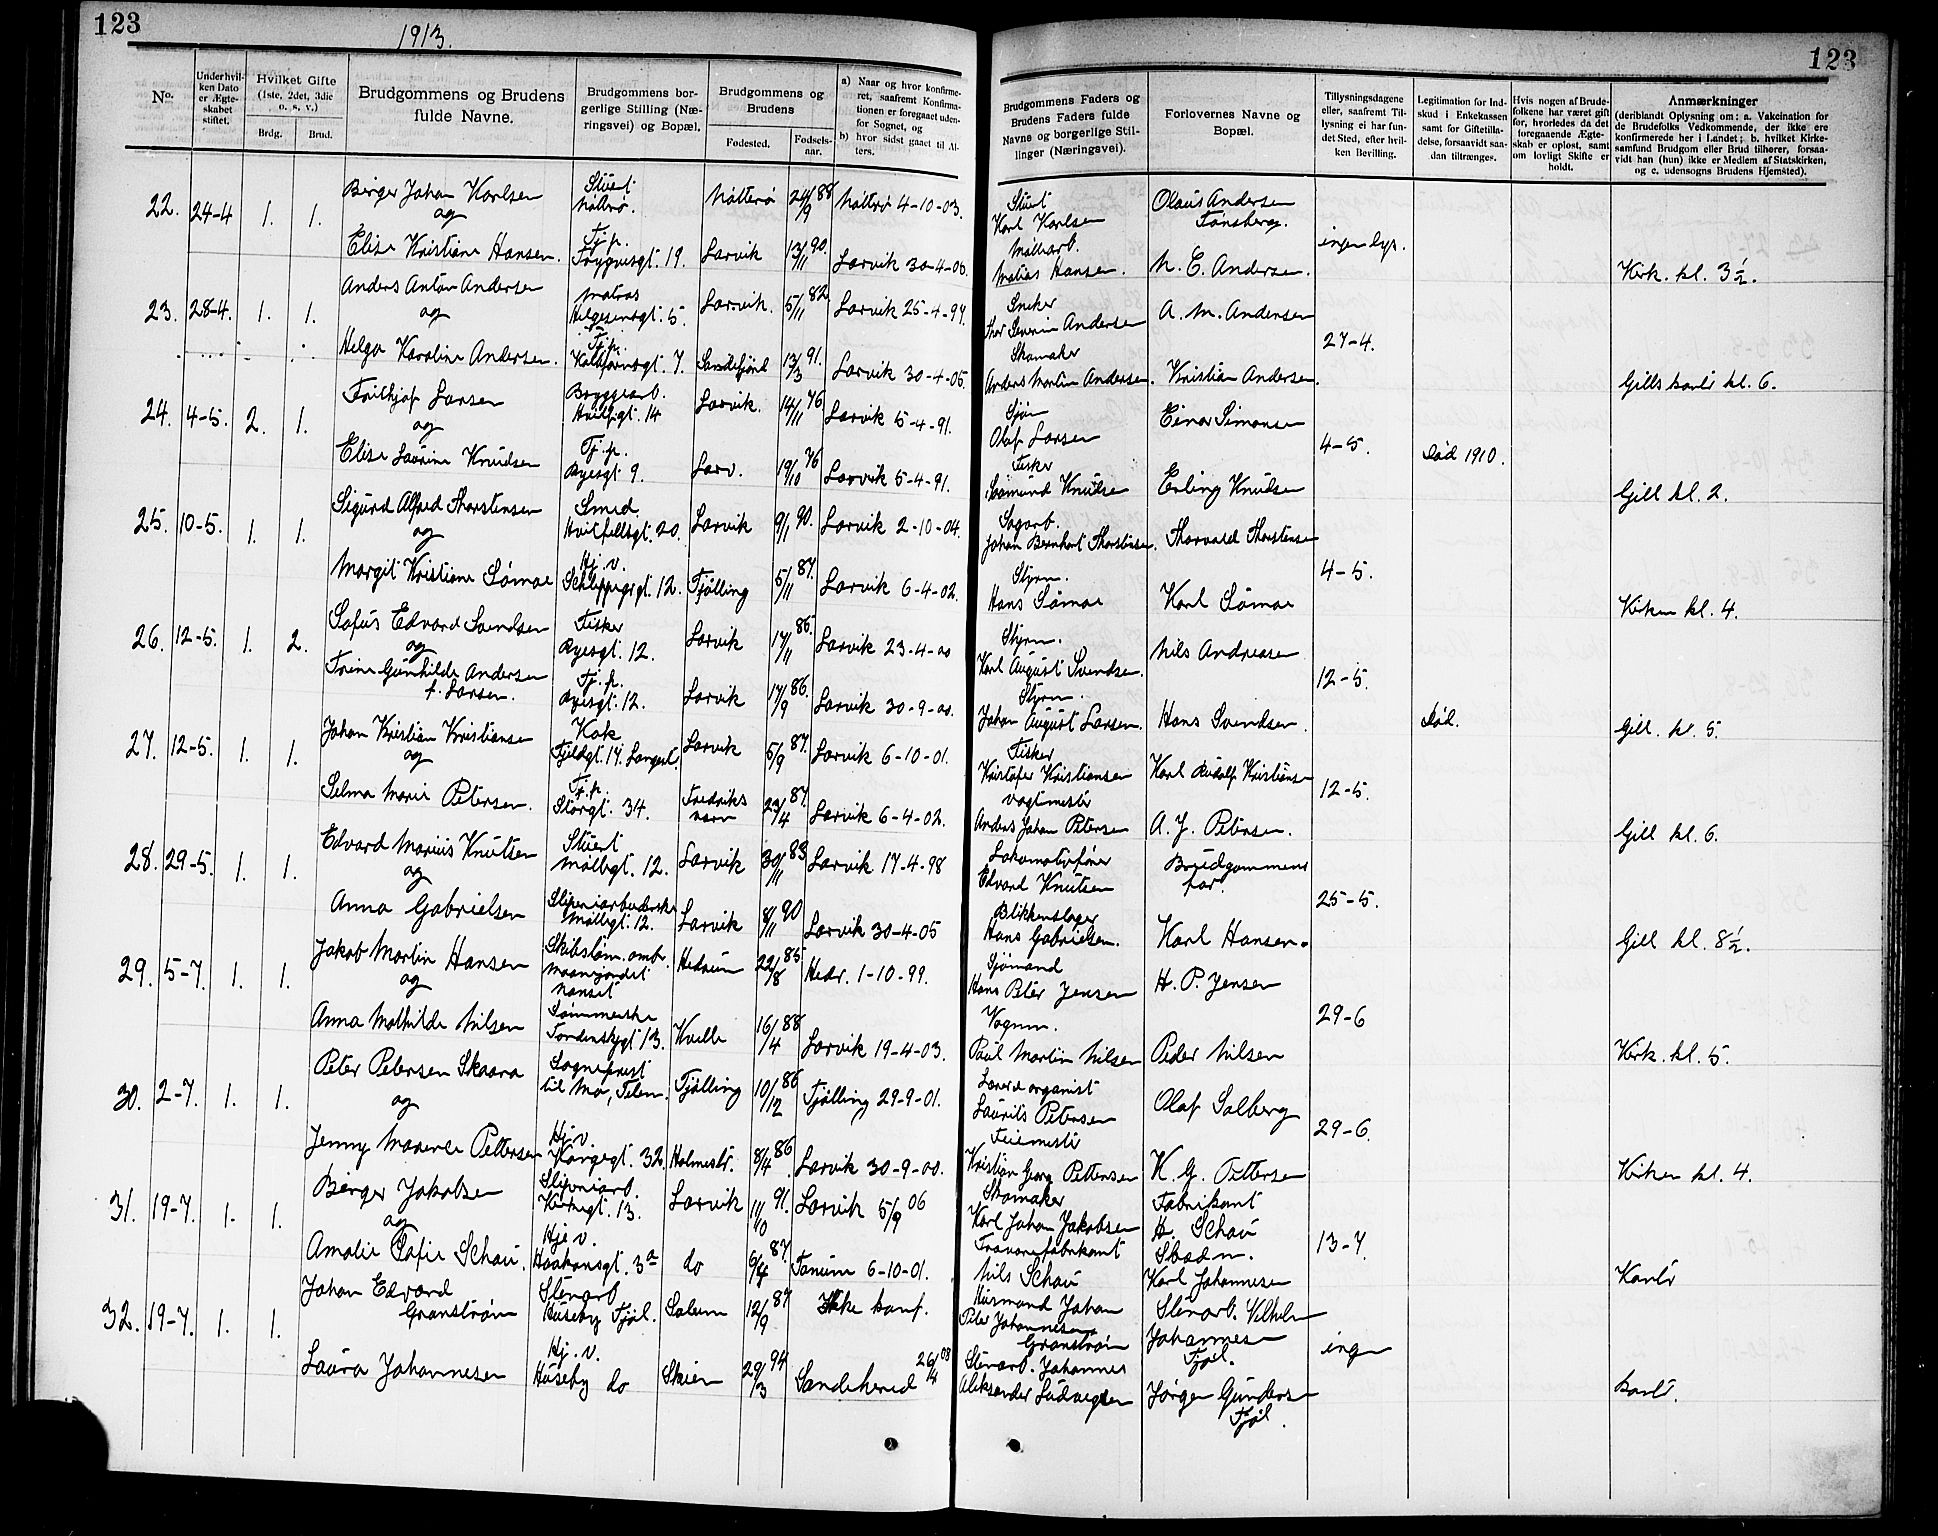 123
1913.
123
No.
Underhvilken Dato er Ægteskabet stiftet.
Hvilket Gifte (1ste, 2det, 3die o. s. v.)
Brdg.
Brud.
Brudgommens og Brudens fulde Navne.
Brudgommens borgerlige Stilling (Næringsvei) og Bopæl.
Brudgommens og Brudens
Fødested.
Fødselsaar.
a) Naar og hvor konfirmeret, saafremt Konfirmationen er foregaaet udenfor Sognet, og
b) hvor sidst gaaet til Alters.
Brudgommens Faders og Brudens Faders fulde Navne og borgerlige Stillinger (Næringsvei).
Forlovernes Navne og Bopæl.
Tillysningsdagene eller, saafremt Tillysning ei har fundet Sted, efter hvilken Bevilling.
Legitimation for Indskud i Enkekassen samt for Giftetilladelse, forsaavidt saadan tiltrænges.
Hvis nogen af Brudefolkene har været gift før, hvorledes da det foregaaende Ægteskab er opløst, samt om lovligt Skifte er holdt.
Anmærkninger
(deriblandt Oplysning om: a. Vakcination for de Brudefolks Vedkommende, der ikke ere konfirmerede her i Landet; b. hvilket Kirkesamfund Brudgom eller Brud tilhører, forsaavidt han (hun) ikke er Medlem af Statskirken, og c. udensogns Brudens Hjemsted).
22. 24-4 1. 1. Birger Johan Karlsen Stuert Nøtterø. Nøtterø 24/9 88 Nøtterø 4-10-03. Stuert Karl Karlsen Olaus Andersen Tønsberg.
og
Elise Kristiane Hansen. Tj.p. Trygvesgt. 19. Larvik 13/11 90. Larvik 30-4-06. Matias Hansen. M. E. Andersen. ingen lys. Kirk. kl. 3 1/2.
23. 28-4. 1. 1. Anders Anton Andersen Matros Helgesensgt. 5. Larvik. 5/11 82 Larvik 25-4-97. Snekker Thor Severin Andersen A. M. Andersen
og
Helga Karoline Andersen. Tj.p. 7. Sandefjord 13/3 91. Larvik 30-4-05. Skomaker Anders Martin Andersen. Kristian Andersen. 27-4. Gills kavlr kl. 6.
24. 4-5. 2. 1. Frithjof Larsen Bryggearb. 14 Larvik. 14/11 76 Larvik 5-4-91. Sjøm Olaf Larsen Einar Simonsen
og
Elise Laurine Knudsen Tj.p. Ryesgt. 9. Larv. 19/10 76 Larvik 5-4-91. Fisker Knutsen Erling Knutsen 4-5. død 1910. Gill kl. 2.
25. 10-5. 1. 1. Sigurd Alfred Thorstensen Smed. Hvitfeldtsgt. 20. Larvik 9/1 90. Larvik 2-10-04. Sagarb. Johan Bernhart Thorstensen. Thorvald Thorstensen
og
Margit Kristiane Sømoe Hj. v. 12. Tjølling 5/11 87. Larvik 6-4-02. Styrm. Hans Sømoe Karl Sømoe 4-5. Kirken kl. 4.
26. 12-5. 1. 2. Sofus Edvard Svendsen Fisker Ryesgt. 12. Larvik 17/11 85. Larvik 23-4-00 Styrm. Karl August Svendsen. Nils Andreasen
og
Trine Gunhilde Andersen f. Larsen. Tj.p. Ryesgt. 12. Larvik 17/9 86. Larvik 30-9-00. Styrm. Johan August Larsen. Hans Svendsen. 12-5. død. Gill. kl. 5.
27. 12-5. 1. 1. Johan Kristian Kristiansen Kok Fjeldgt. 17. Langest. Larvik 5/9 87. Larvik 6-10-01. Fisker Kristofer Kristiansen Karl Rudolf Kristiansen
og
Selma Marie Petersen. Tj.p. Storgt. 34. Fredriksværn 23/4 87. Larvik 6-4-02. Vagtmester Anders Johan Petersen A. J. Petersen. 12-5. Gill kl. 6.
28. 29-5. 1. 1. Edvard Marius Knutsen Stuert Møllegt. 12. Larvik 30/11 83 Larvik 17-4-98 Lokomotivfører Edvard Knutsen Brudgommens far.
og
Anna Gabrielsen Sliperiarbeiderske Møllegt. 12. Larvik 8/11 90 Larvik 30-4-05 Blikkenslager Hans Gabrielsen. Karl Hansen. 25-5. Gill kl. 8 1/2.
29. 5-7. 1. 1. Jakob Martin Hansen Skibstøm. Nanset Hedrum 22/8 85 Hedr. 1-10-99. Sjømand Hans Peter Jensen H. P. Jensen
og
Anna Mathilde Nilsen Sømmerske Tordenskjgt 13. Kvelle 16/4 88 Larvik 19-4-03. Vognm. Paul Martin Nilsen Peder Nilsen 29-6 Kirk. kl. 5.
30. 2-7. 1. 1. Peter Petersen Skaara Sogneprest til Mo, Telem. Tjølling 10/12 86 Tjølling 29-9-01. Lærer & organist Laurits Petersen Olaf Solberg
og
Jenny Marence Pettersen Hj. v. Kongegt. 32. Holmestr. 8/4 86 Larvik 30-9-00. Feiemester Kristian Georg Pettersen K. G. Pettersen 29-6. Kirken kl. 4.
31. 19-7. 1. 1. Birger Jakobsen Sliperiarb. Kirkegt. 13. Larvik 11/10 91. Larvik 5/9 06 Skomaker Karl Johan Jakobsen Fabrikant H. Schau
og
Amalie Sofie Schau. Hj. v. Haakonsgt. 3a do 6/4 87. Tanum 6-10-01. Travarefabrikant Nils Schau Karl Johannesen 13-7. Kavlr
32. 19-7. 1. 1. Johan Edvard Granstrøm Stenarb Huseby Tjøl. Solum 12/9 87 Ikke konf. Husmand Johan Peter Johannesen Granstrøm Stenarb. Vilhelm Johannesen Tjøl.
Laura Johannesen Hj. v. Huseby do Skien 29/3 94 Sandeherred 26/4 08 Stenarb. Johannes Aleksander Ludvigsen Jørgen Gundersen Tjøl. ingen kavlr.